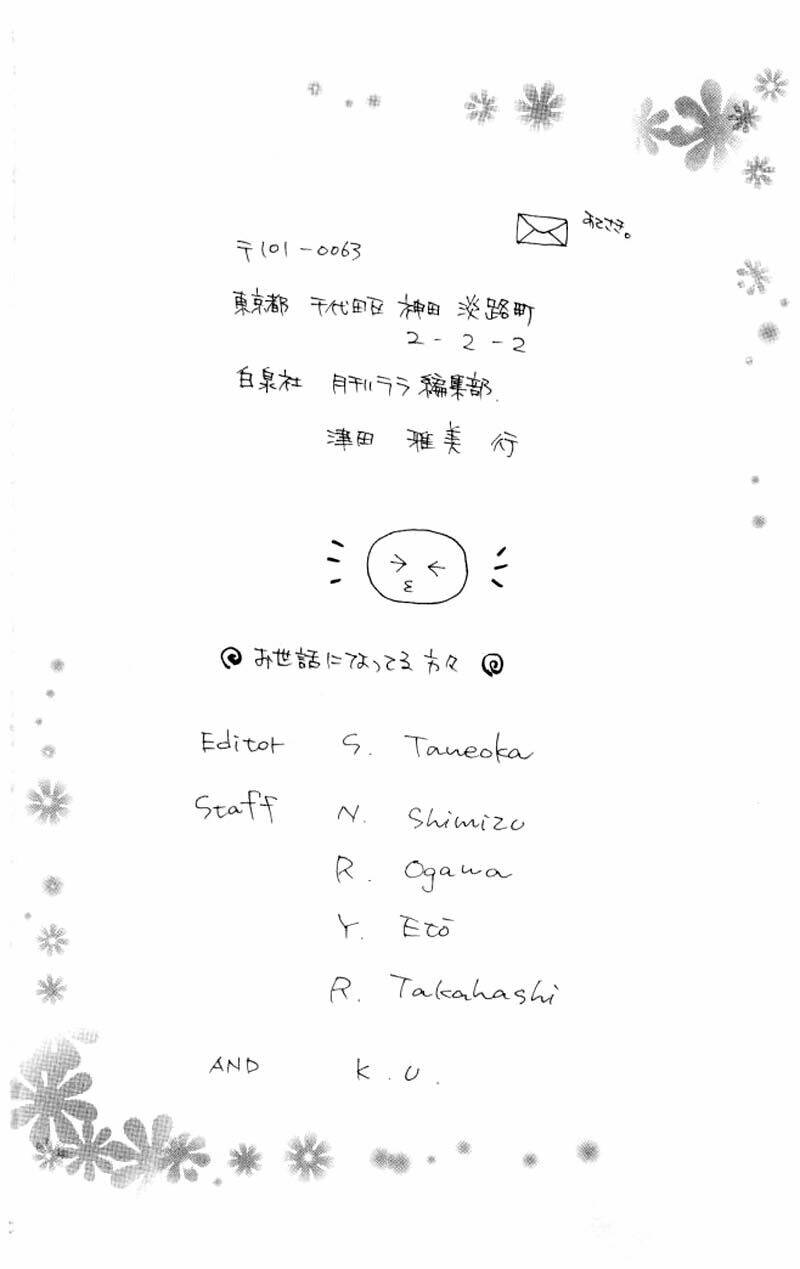 あてさき。
〒101-0063
東京都 千代田区 神田 淡路町
2-2-2
白泉社 月刊ララ編集部.
津田 雅美 行
お世話になってる方々
Editor S. Taneoka
Staff N. Shimizu
R. Ogawa
Y. Etō
R. Takahashi
AND K.U.